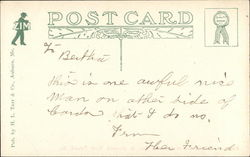 ZIM
POST CARD
Pub. by H. L. & Co., Auburn,
To
Bertha
This is one awful nice
Man on other side of
Card I do no.
From
Her Friend